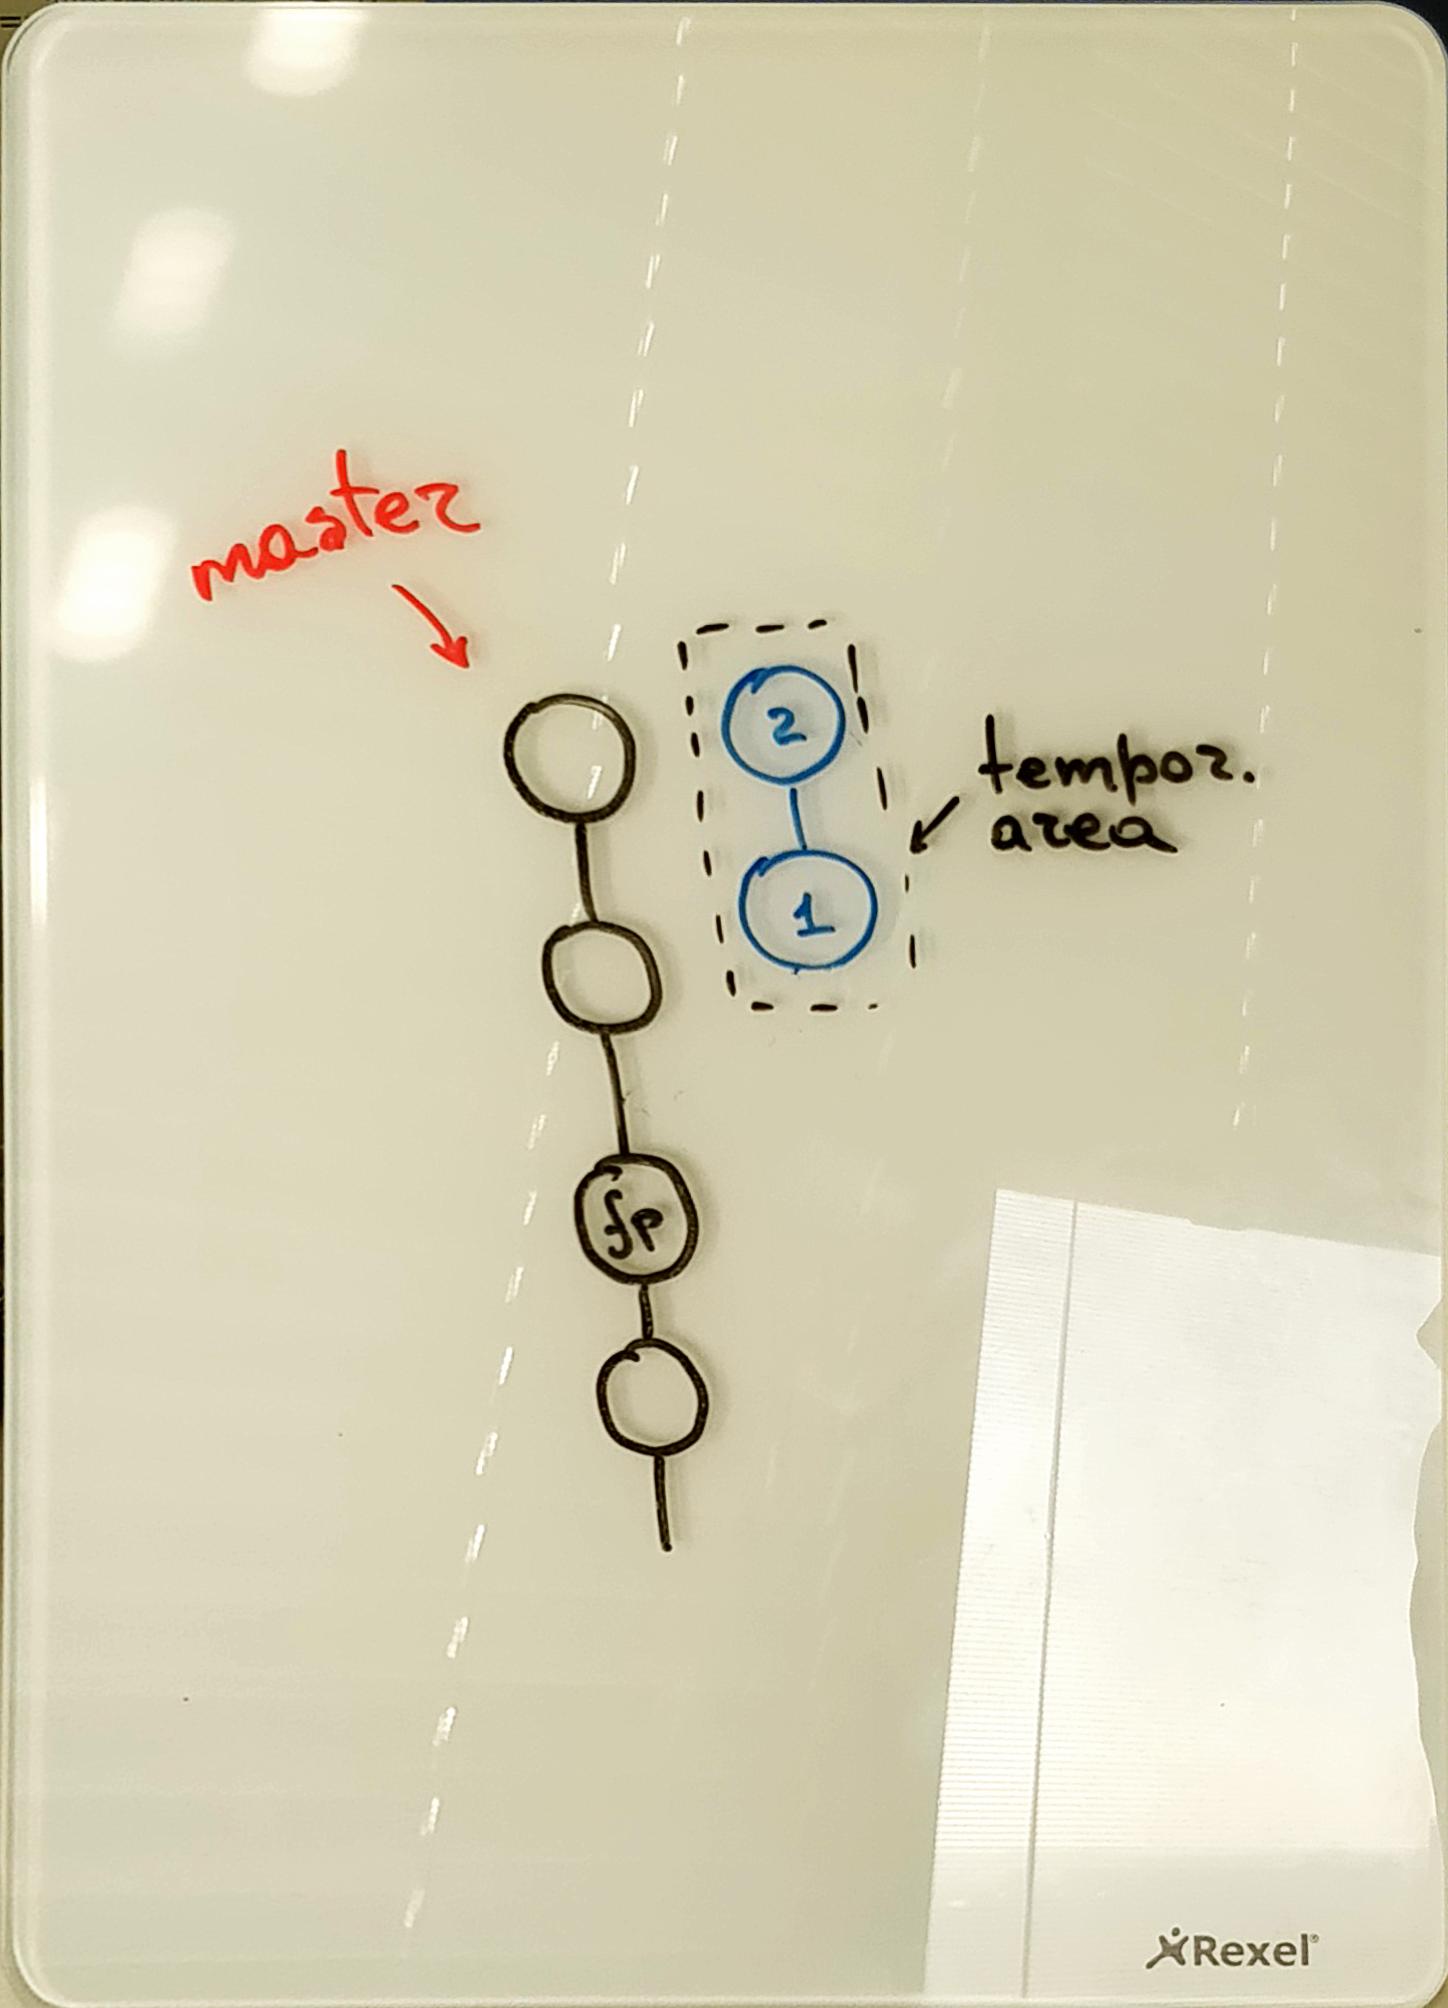 master
2
tempor.
area
1
fp
Rexel®